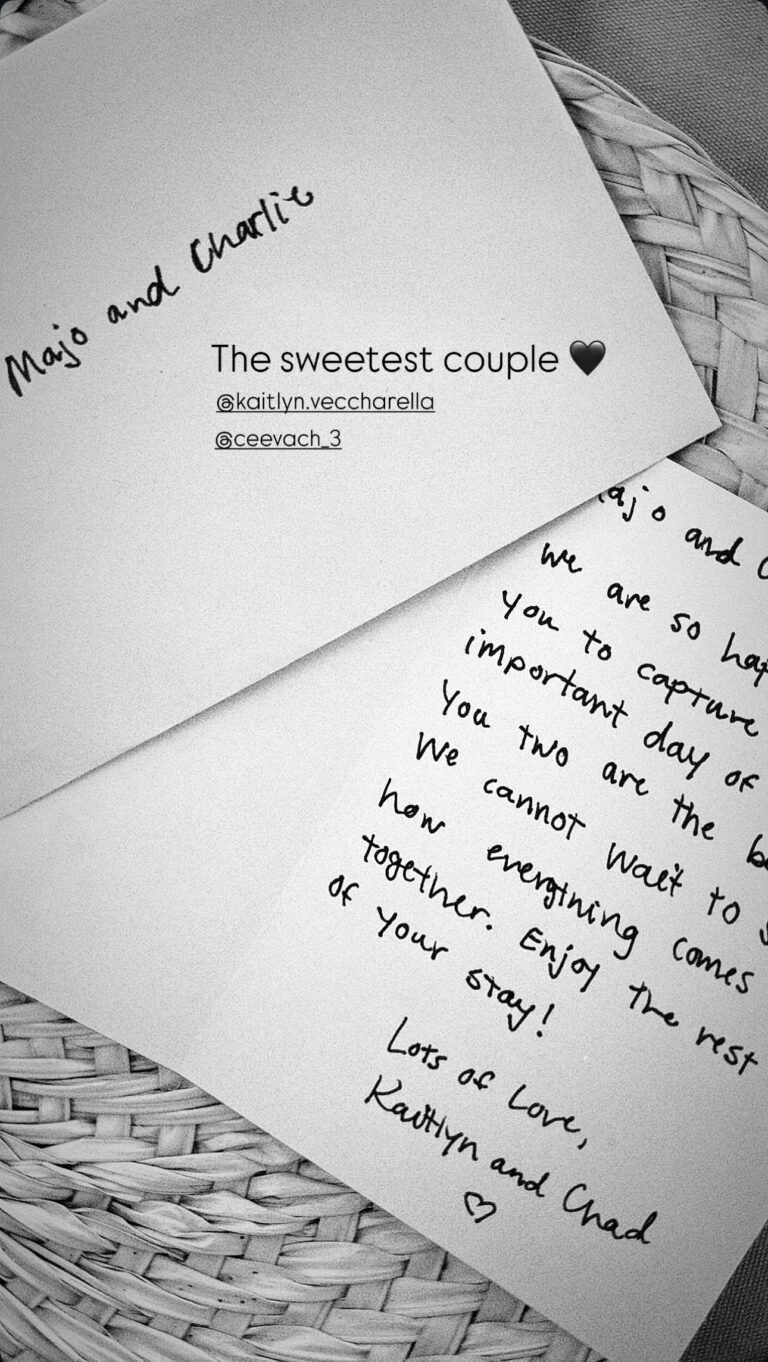 Majo and Charlie
The sweetest couple 🖤
@kaitlyn.veccharella
@ceevach_3
and
We are so
You to capture
important day of
You two are the
We cannot wait to
how everything comes
together. Enjoy the rest
of your stay!
Lots of Love,
Kaitlyn and Chad
♡